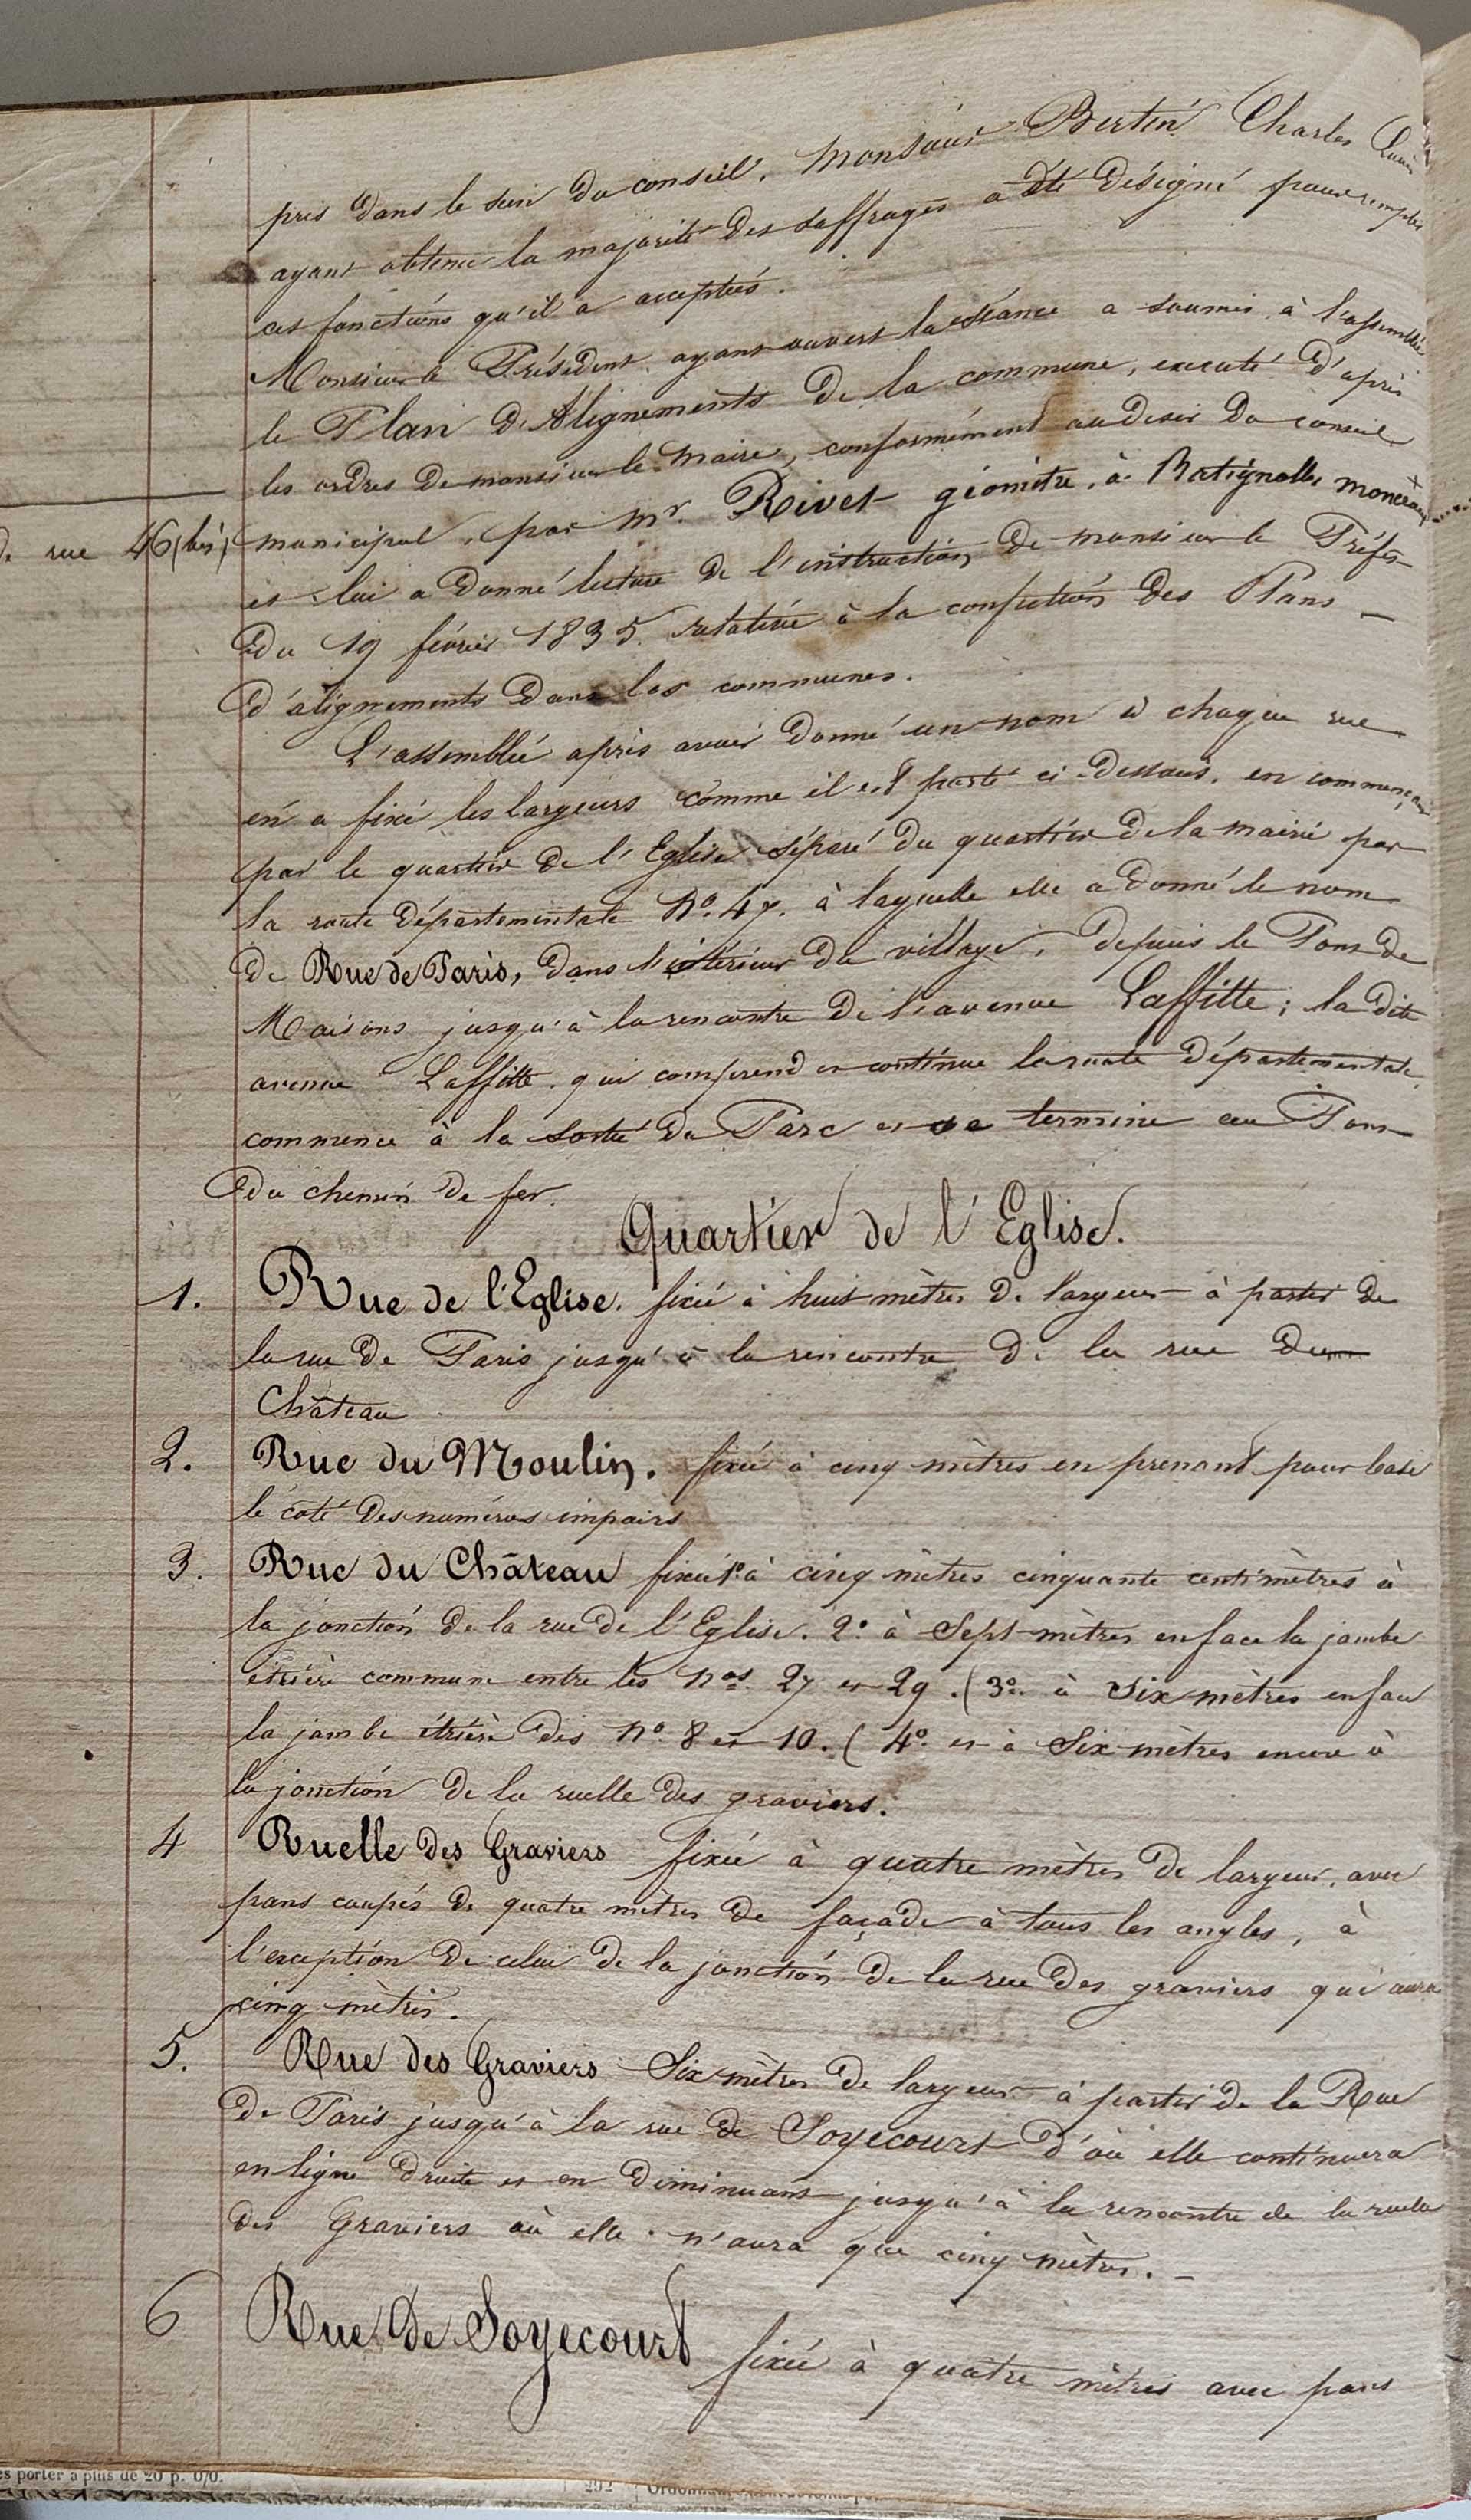 pris dans le sein du conseil. Monsieur Bertin Charles Louis
ayant obtenu la majorité des suffrages a été désigné pour remplir
ces fonctions qu'il a acceptées.
Monsieur le Président, ayant ouvert la séance a soumis à l'assemblée
le Plan d'Alignements de la commune, executé d'après
les ordres de monsieur le maire, conformément au desir du conseil
d. rue 46 (bis) municipal, par mr. Rivet géomètre, à Batignolles monceaux
et lui a donné lecture de l'instruction de monsieur le Préfet
du 19 février 1835 relative à la confection des Plans
d'alignements dans les communes.
L'assemblée après avoir donné un nom à chaque rue
en a fixé les largeurs comme il est porté ci-dessous, en commençant
par le quartier de l'Eglise séparé du quartier de la mairie par
la route départementale No. 47. à laquelle elle a donné le nom
de Rue de Paris, dans l'intérieur du village, depuis le Pont de
Maisons jusqu'à la rencontre de l'avenue Laffitte; la dite
avenue Laffitte qui comprend et continue la route départementale,
commence à la sortie du Parc et se termine au Pont
du chemin de fer.
Quartier de l'Eglise.
1. Rue de l'Eglise. fixée à huit mètres de largeur à partir de
la rue de Paris jusqu'à la rencontre de la rue du
Château
2. Rue du Moulin. fixée à cinq mètres en prenant pour base
le coté des numéros impairs
3. Rue du Château fixée 1º à cinq mètres cinquante centimètres à
la jonction de la rue de l'Eglise. 2º à Sept mètres en face la jambe
etrière commune entre les nos. 27 et 29. (3º à six mètres en face
la jambe étrière des nº 8 et 10. (4º et à Six mètres encore à
la jonction de la ruelle des graviers.
4 Ruelle des Graviers fixée à quatre mètres de largeur, avec
pans coupés de quatre mètres de façade à tous les angles, à
l'exception de celui de la jonction de la rue des graviers qui aura
cinq mètres.
5. Rue des Graviers Six mètres de largeur à partir de la Rue
de Paris jusqu'à la rue de Soyecourt d'où elle continuera
en ligne droite et en diminuant jusqu'à la rencontre de la ruelle
des Graviers où elle n'aura que cinq mètres.
6 Rue de Soyecourt fixée à quatre mètres avec pans
es porter à plus de 20 p. 0/0.